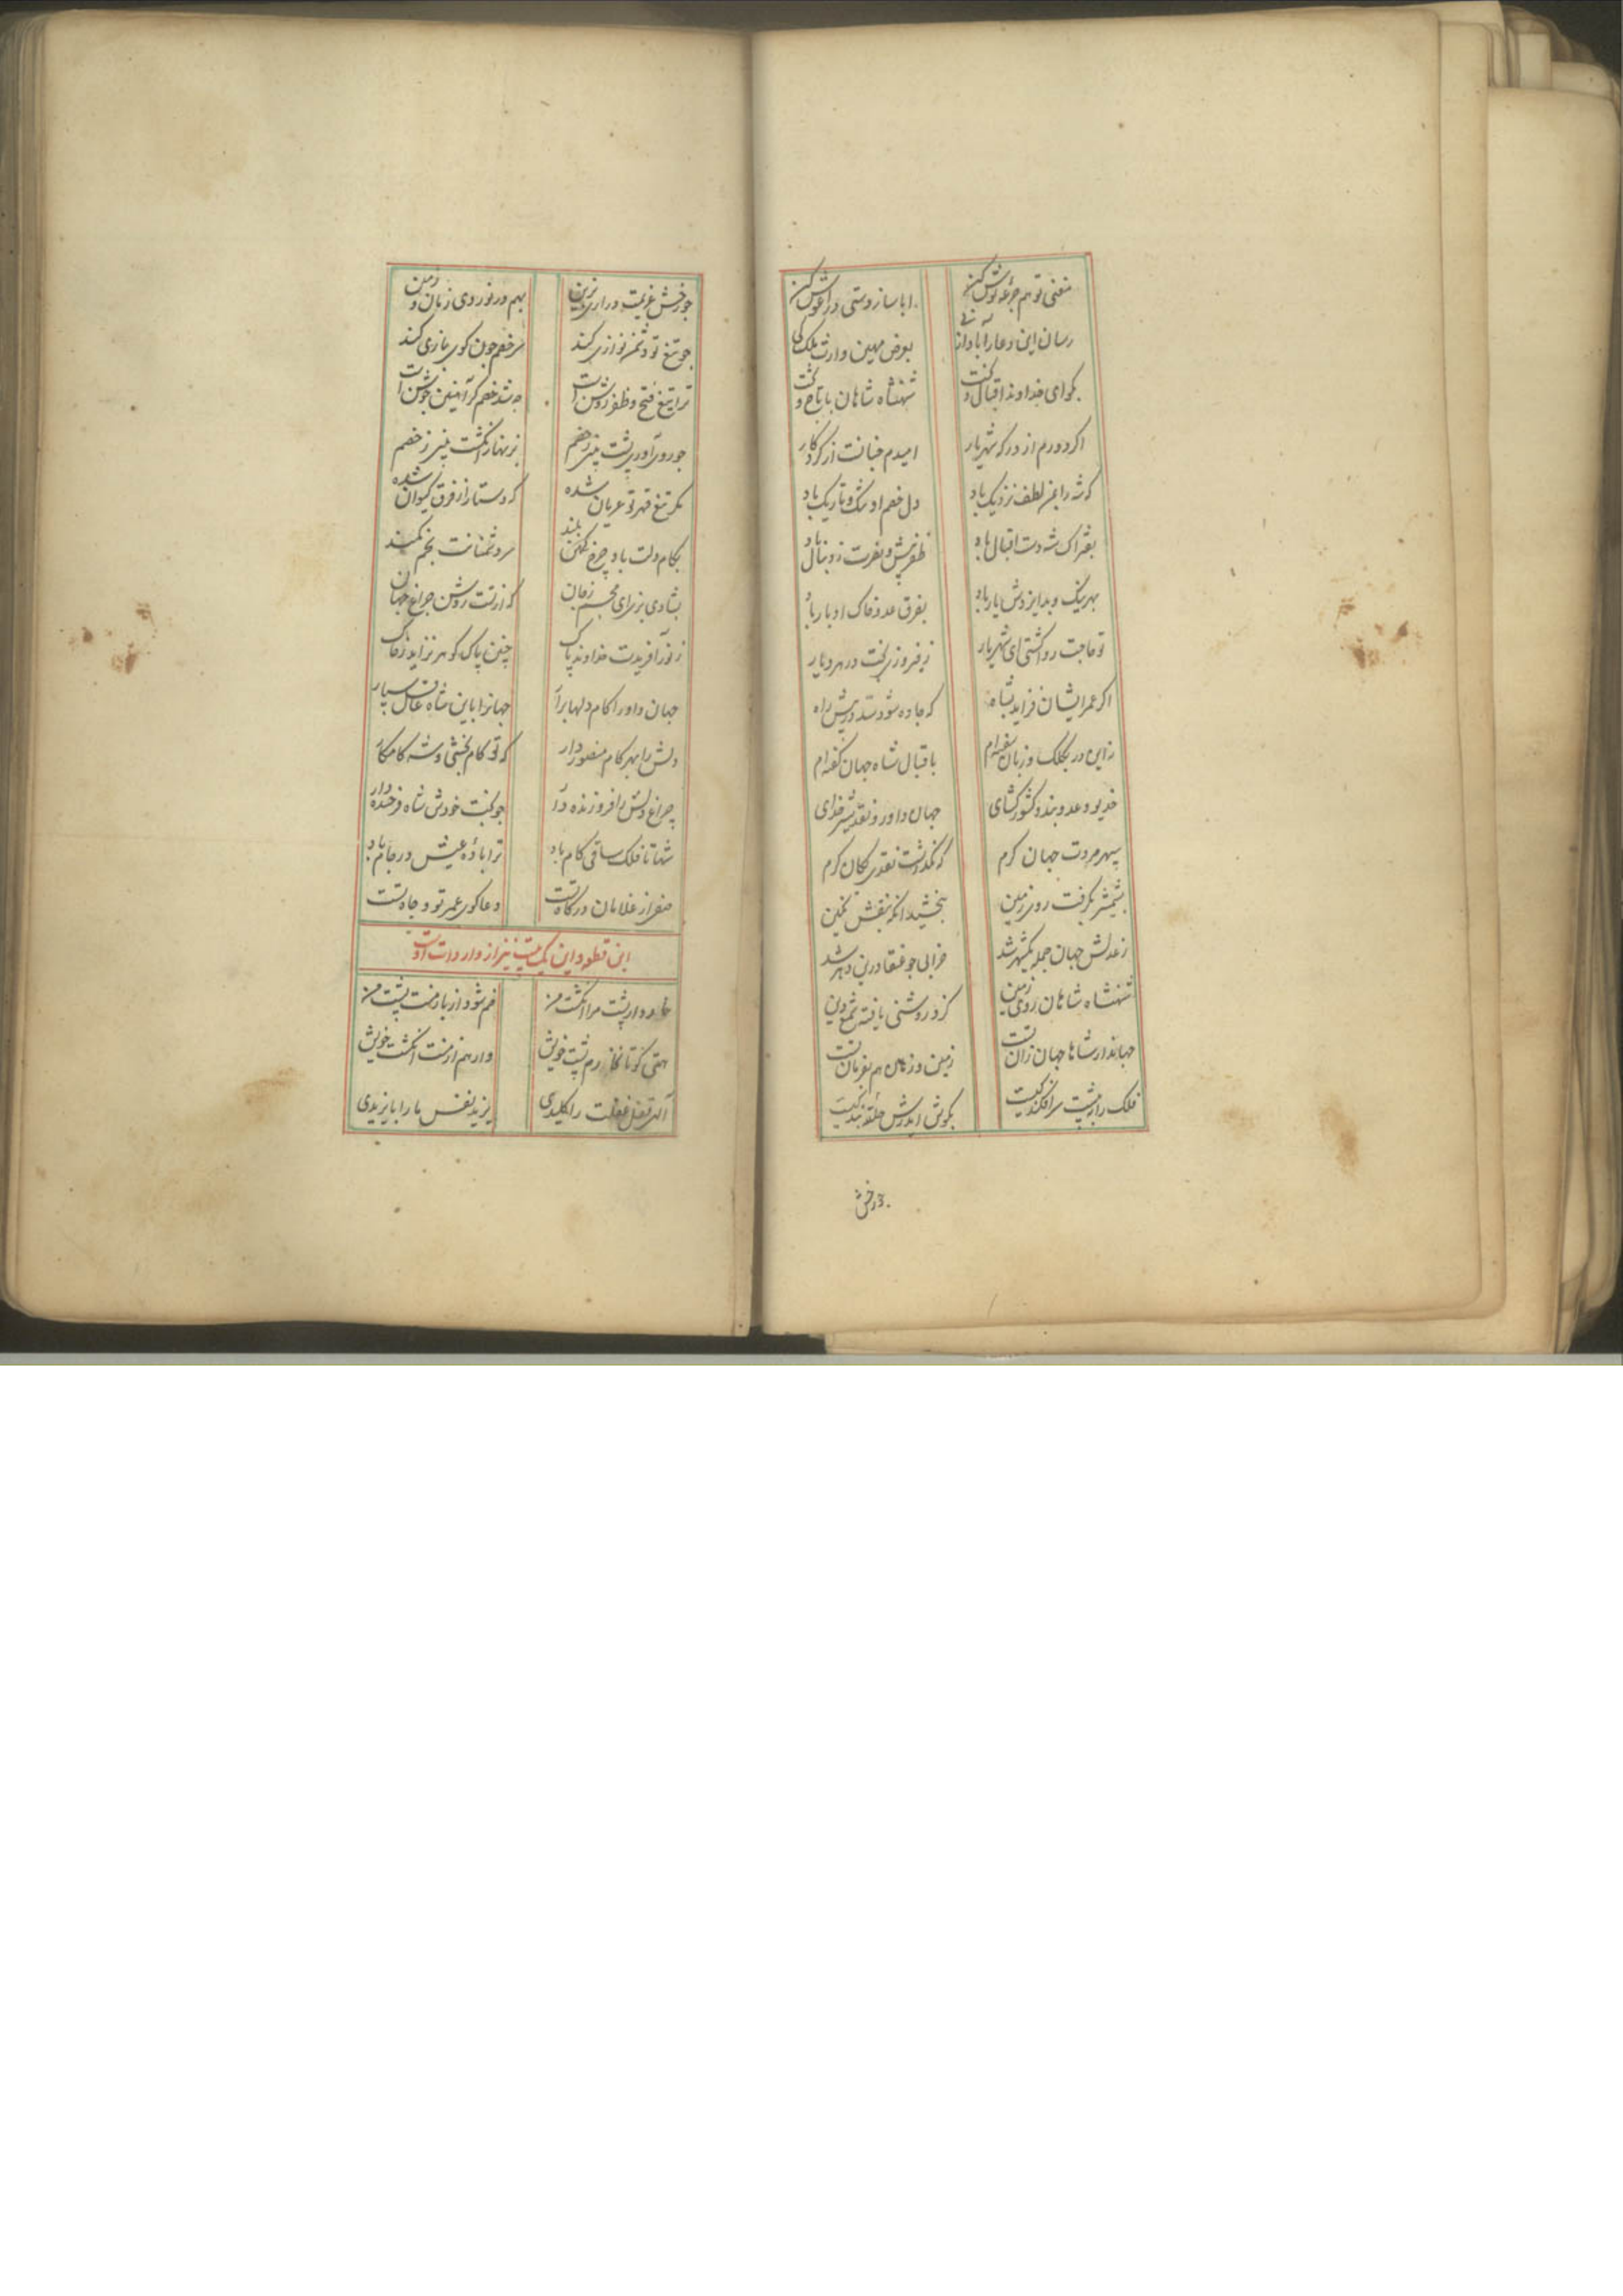 مغنی تو هم جرعهٔ نوش کن
ابا ساز دستی در آغوش کن
رسان این دعا را بآواز نی
بعرض مهین وارث ملک کی
بگو ای خداوند اقبال و بخت
شهنشاه شاهان با تاج و تخت
اکر دورم از درکه شهریار
امیدم چنانست از کردکار
که شه را بمن لطف نزدیک باد
دل خصم او تنک و تاریک باد
بفتراک شه دست اقبال باد
ظفر پیش و نصرت ز دنبال باد
بهر نیک و بد ایزدش یار باد
بفرق عدو خاک ادبار باد
تو حاجت روا کشتی ای شهریار
ز فیروز بخت در هر دیار
اکر عمر ایشان فزاید بشاه
که جاده شود سد درپیش راه
ز این در بکلک و زبان سفته‌ام
باقبال شاه جهان کفته‌ام
خدیو عدو بند و کشورکشای
جهان داور و نقد شیر خدای
سپهر مروت جهان کرم
که نکذاشت نقدی بکان کرم
بشمشیر بکرفت روی زمین
ببخشید انکه بنقش نکین
ز عدلش جهان جمله یکشهر شد
خرابی چو عنقا درین دهر شد
شهنشاه شاهان روی زمین
کزو روشنی یافته شمع دین
جهاندار شاها جهان زان تست
زمین و زمان هم بفرمان تست
فلک را ز پیشت سرافکندکیست
بکوش اندرش حلقه بندکیست
چو رخش
چو رخش عزیمت در آری بزین
بهم در نوردی زمان و زمین
چو تیغ تو دشمن نوازی کند
سر خصم چون کوی بازی کند
ترا تیغ فتح و ظفر روشن است
چه شد خصم کر آهنین جوشن است
چو روی آوری پشت بینی ز خصم
بزنهار انکشت بینی ز خصم
مکر تیغ قهر تو عریان شده
که دستار از فرق کیوان شده
بکام دلت باد چرخ بلند
سر دشمنانت بخم کمند
بشادی بزی ای مجسم زمان
که از تست روشن چراغ جهان
ز نور آفریدت خداوند پاک
چنین پاک کوهر نزاید ز خاک
جهان داورا کام دلها برآر
جهانرا باین شاه عادل سپار
دلش را بهر کام منصور دار
که تو کام بخشی و شه کامکار
چراغ دلش را فروزنده دار
چو بخت خودش شاه فرخنده دار
شها تا فلک ساقی کام باد
ترا بادهٔ عیش در جام باد
صفر از غلامان درکاه تست
دعاکوی عمر تو و جاه تست
این قطعه و این یک بیت نیز از واردات اوست
خارد ار پشت مرا انکشت من
خم شود از بار منت پشت من
همتی کو تا نخارم پشت خویش
وارهم از منت انکشت خویش
الهی قفل غفلت را کلیدی
یزید نفس ما را بایزیدی